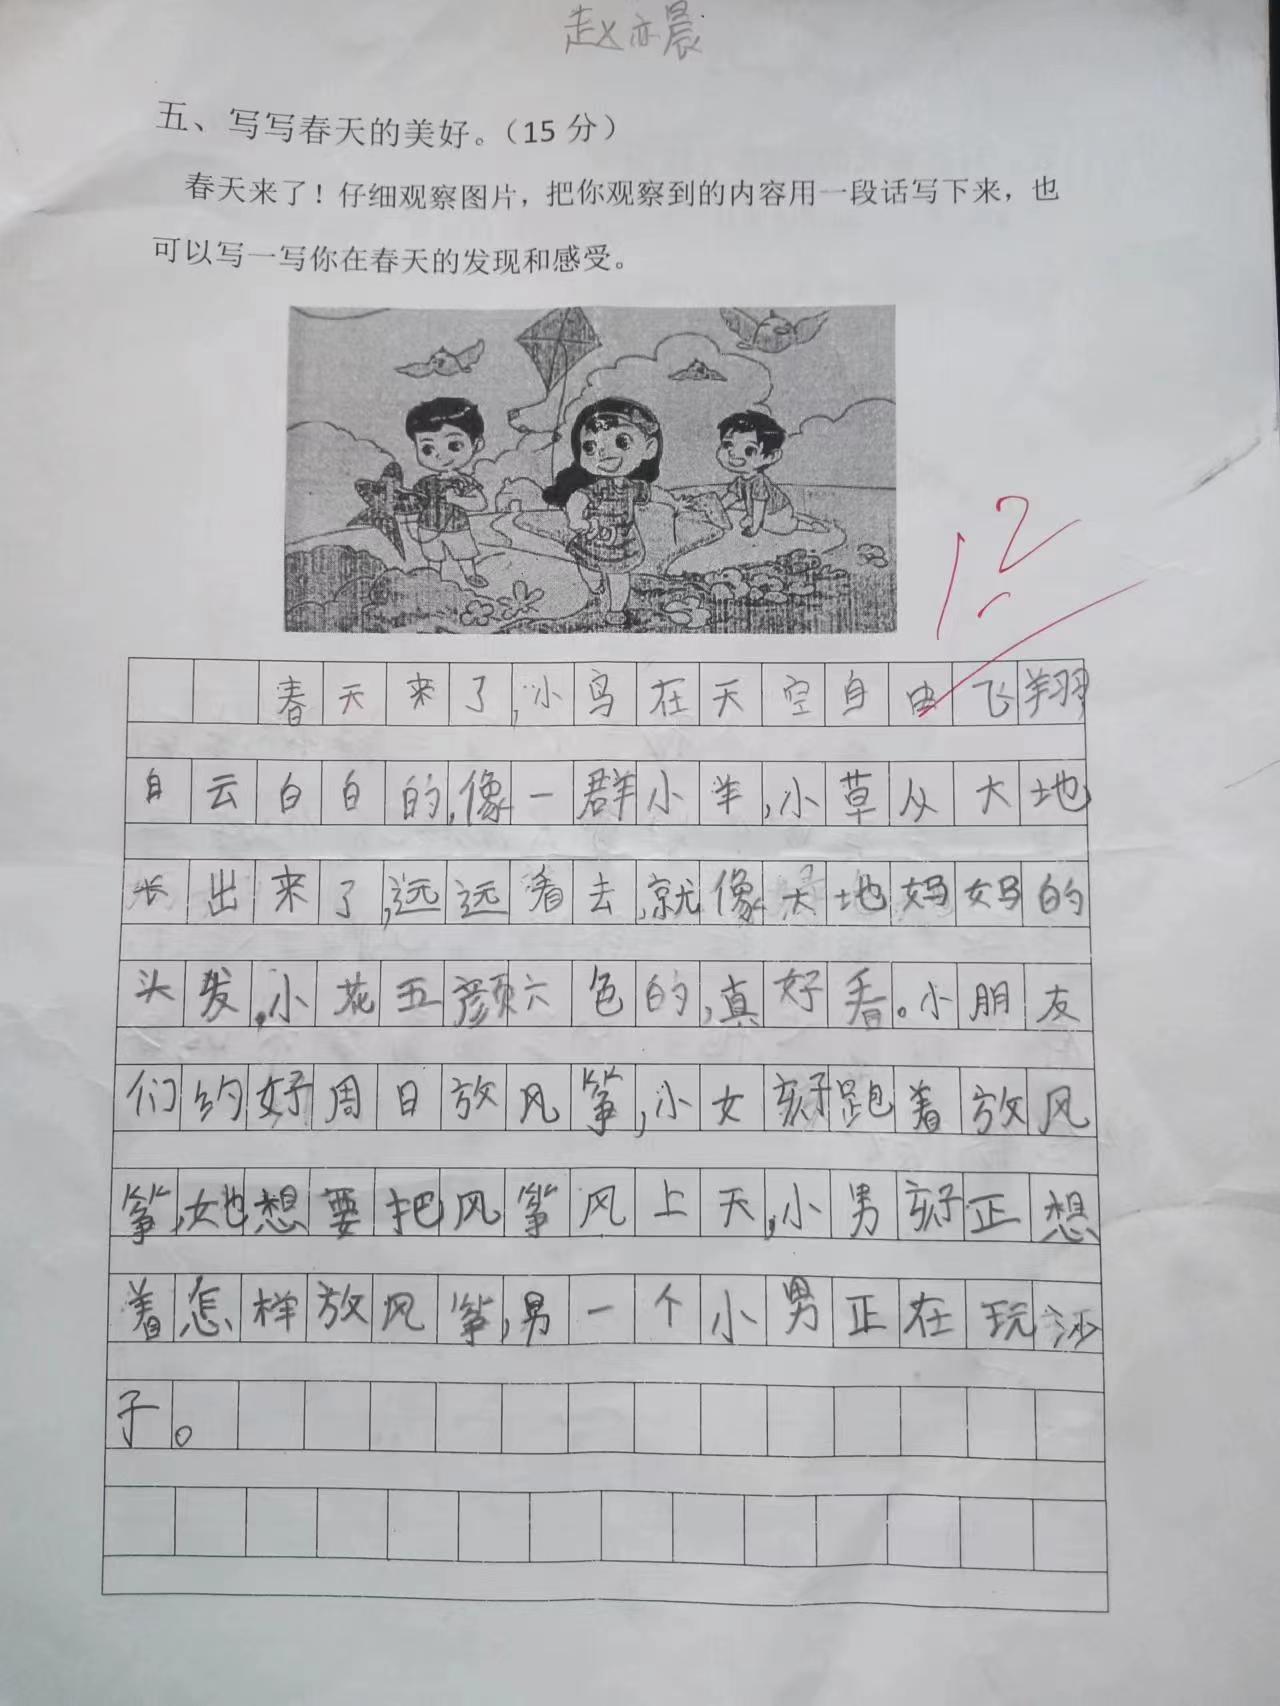 赵亦晨
五、写写春天的美好。（15 分）
春天来了！仔细观察图片，把你观察到的内容用一段话写下来，也
可以写一写你在春天的发现和感受。
12
春天来了,小鸟在天空自由飞翔
自云白白的,像一群小羊,小草从大地
长出来了,远远看去,就像天地妈妈的
头发,小花五颜六色的,真好看。小朋友
们约好周日放风筝,小女孩跑着放风
筝,她想要把风筝风上天,小男孩正想
着怎样放风筝,男一个小男正在玩沙
子。